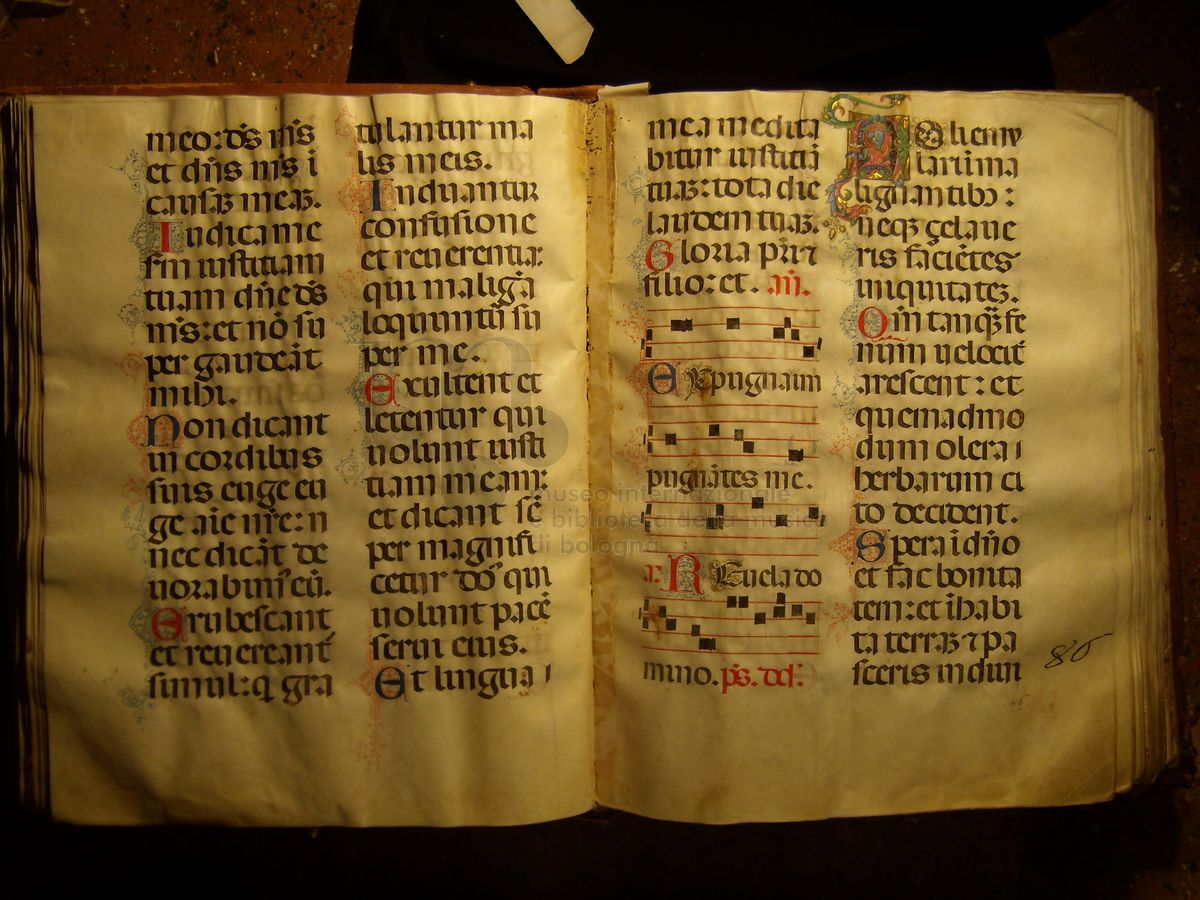 meo: ds ms
et dns ms i
causaz meaz.
Iudica me
sm iustitiam
tuam dne ds
ms: et no su
per gaudeat
mihi.
Non dicant
in cordibus
suis euge eu
ge aie nre: n
nec dicat de
uorabim9 eu.
Erubescant
et reuereant
simul: q gra
tulantur ma
lis meis.
Induantur
confusione
et reuerentia:
qui maliga
loquuntu su
per me.
Exultent et
letentur qui
uolunt iusti
tiam meam:
et dicant se
per magnifi
cetur do9 qui
uolunt pace
serui eius.
Et lingua
mea medita
bitur iustitia
tuaz: tota die
laudem tuaz.
Gloria pri 7
filio: et. an.
Expugnam
pugnates me.
Reuela do
mino. ps. dd.
Noli emu
lari i ma
lignantib9:
neqz zelaue
ris facietes
iniquitatez.
Qm tanqz fe
num uelocit
arescent: et
quemadmo
dum olera
herbarum ci
to decident.
Spera i dno
et fac bonita
tem: et ihabi
ta terraz 7 pa
sceris in diui
86
museo internazionale
e biblioteca della musica
di bologna